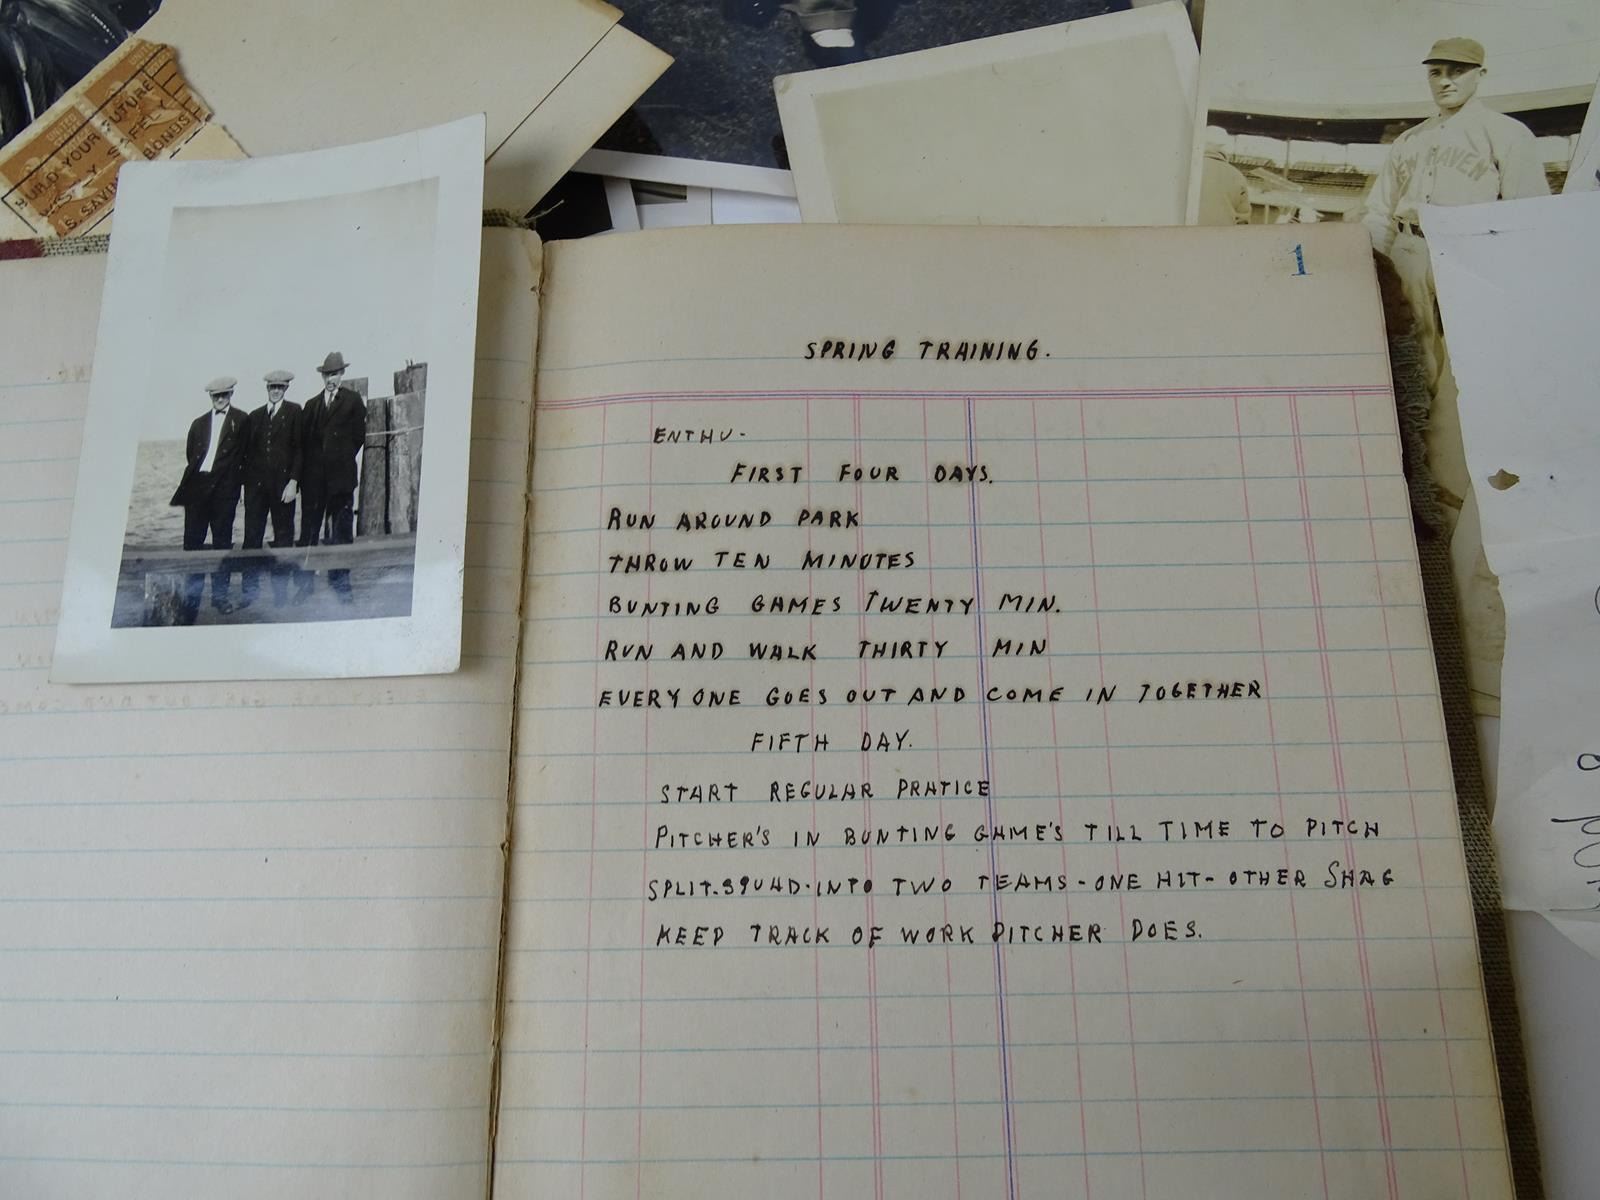 BUILD YOUR FUTURE
SAFELY
U.S. SAVINGS BONDS
UNITED
NEW HAVEN
1
SPRING TRAINING.
ENTHU-
FIRST FOUR DAYS.
RUN AROUND PARK
THROW TEN MINUTES
BUNTING GAMES TWENTY MIN.
RUN AND WALK THIRTY MIN
EVERY ONE GOES OUT AND COME IN TOGETHER
FIFTH DAY.
START REGULAR PRATICE
PITCHER'S IN BUNTING GAME'S TILL TIME TO PITCH
SPLIT-SQUAD-INTO TWO TEAMS-ONE HIT-OTHER SHAG
KEEP TRACK OF WORK PITCHER DOES.